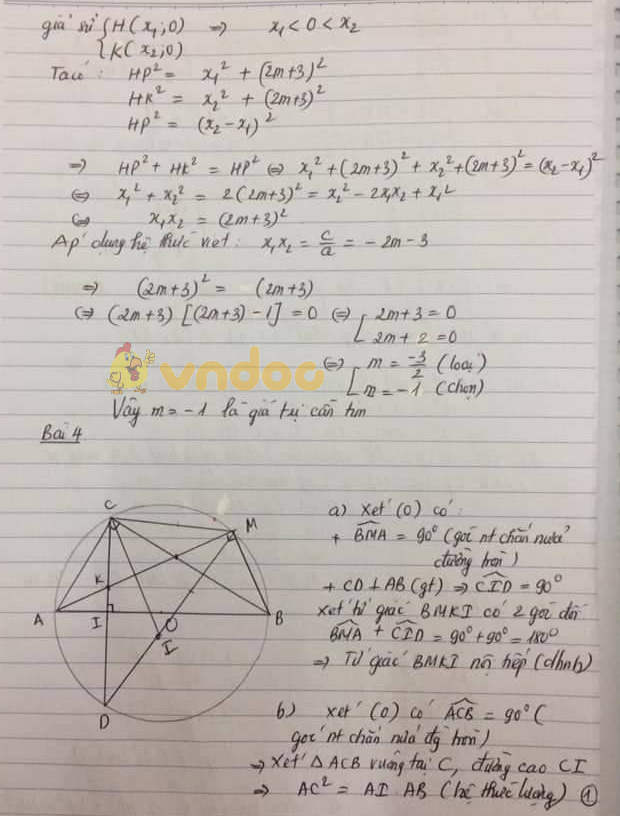 giả sử { H(x₁;0) ⇒ x₁ < 0 < x₂
K(x₂;0)
Ta có: HP² = x₁² + (2m+3)²
HK² = x₂² + (2m+3)²
HP² = (x₂-x₁)²
⇒ HP² + HK² = HP² ⇔ x₁² + (2m+3)² + x₂² + (2m+3)² = (x₂-x₁)²
⇔ x₁² + x₂² = 2(2m+3)² = x₂² - 2x₁x₂ + x₁²
⇔ x₁x₂ = (2m+3)²
Áp dụng hệ thức viet: x₁x₂ = c/a = -2m-3
⇒ (2m+3)² = (2m+3)
⇔ (2m+3)[(2m+3)-1] = 0 ⇔ [ 2m+3 = 0
2m+2 = 0
⇔ [ m = -3/2 (loại)
vndoc
m = -1 (chọn)
Vậy m = -1 là giá trị cần tìm
Bài 4
C
M
K
A
I
O
B
I
D
a) Xét (O) có:
+ BMA = 90° (góc nt chắn nửa
đường tròn)
+ CD ⊥ AB (gt) ⇒ CID = 90°
Xét tứ giác BMKI có 2 góc đối
BMA + CID = 90° + 90° = 180°
⇒ Tứ giác BMKI nội tiếp (dhnb)
b) Xét (O) có ACB = 90° (
góc nt chắn nửa đg tròn)
→ Xét Δ ACB vuông tại C, đường cao CI
⇒ AC² = AI AB (hệ thức lượng) ①